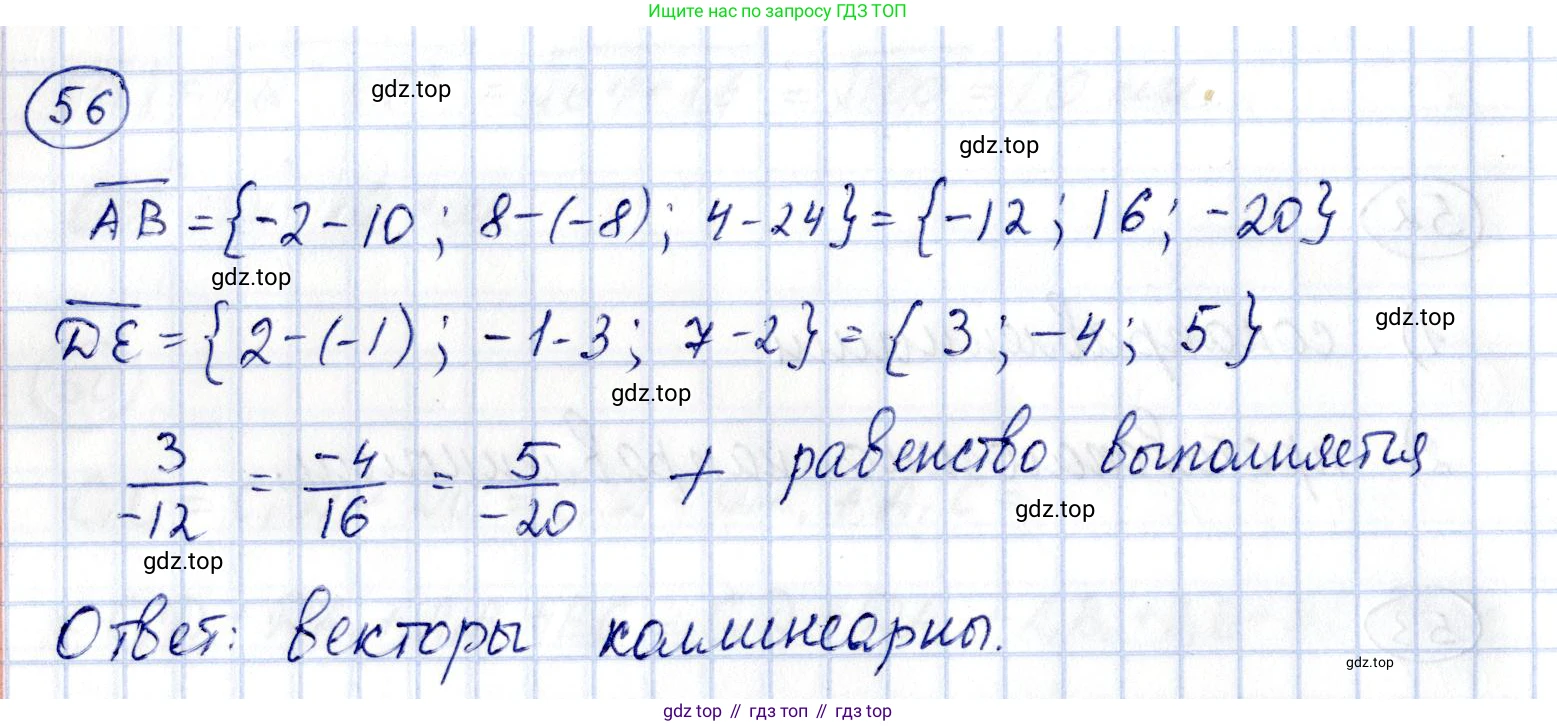 Ищите нас по запросу ГДЗ ТОП
56
gdz.top
gdz.top
AB = {-2-10; 8-(-8); 4-24} = {-12; 16; -20}
gdz.top
DE = {2-(-1); -1-3; 7-2} = {3; -4; 5}
gdz.top
gdz.top
3/-12 = -4/16 = 5/-20 + равенство выполняется
gdz.top
gdz.top
Ответ: векторы коллинеарны.
gdz.top
gdz.top // гдз топ // гдз.top